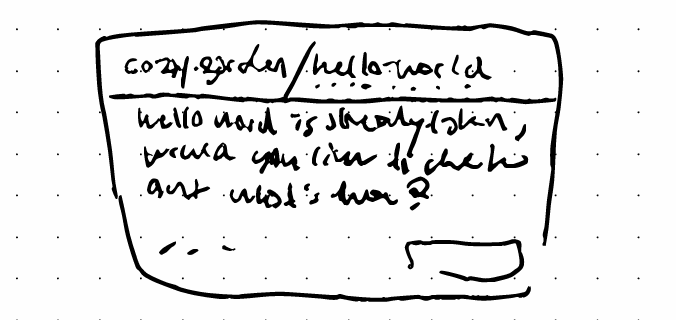 cozy.garden/hello-world
hello world is already taken,
would you like to check
out what's there?